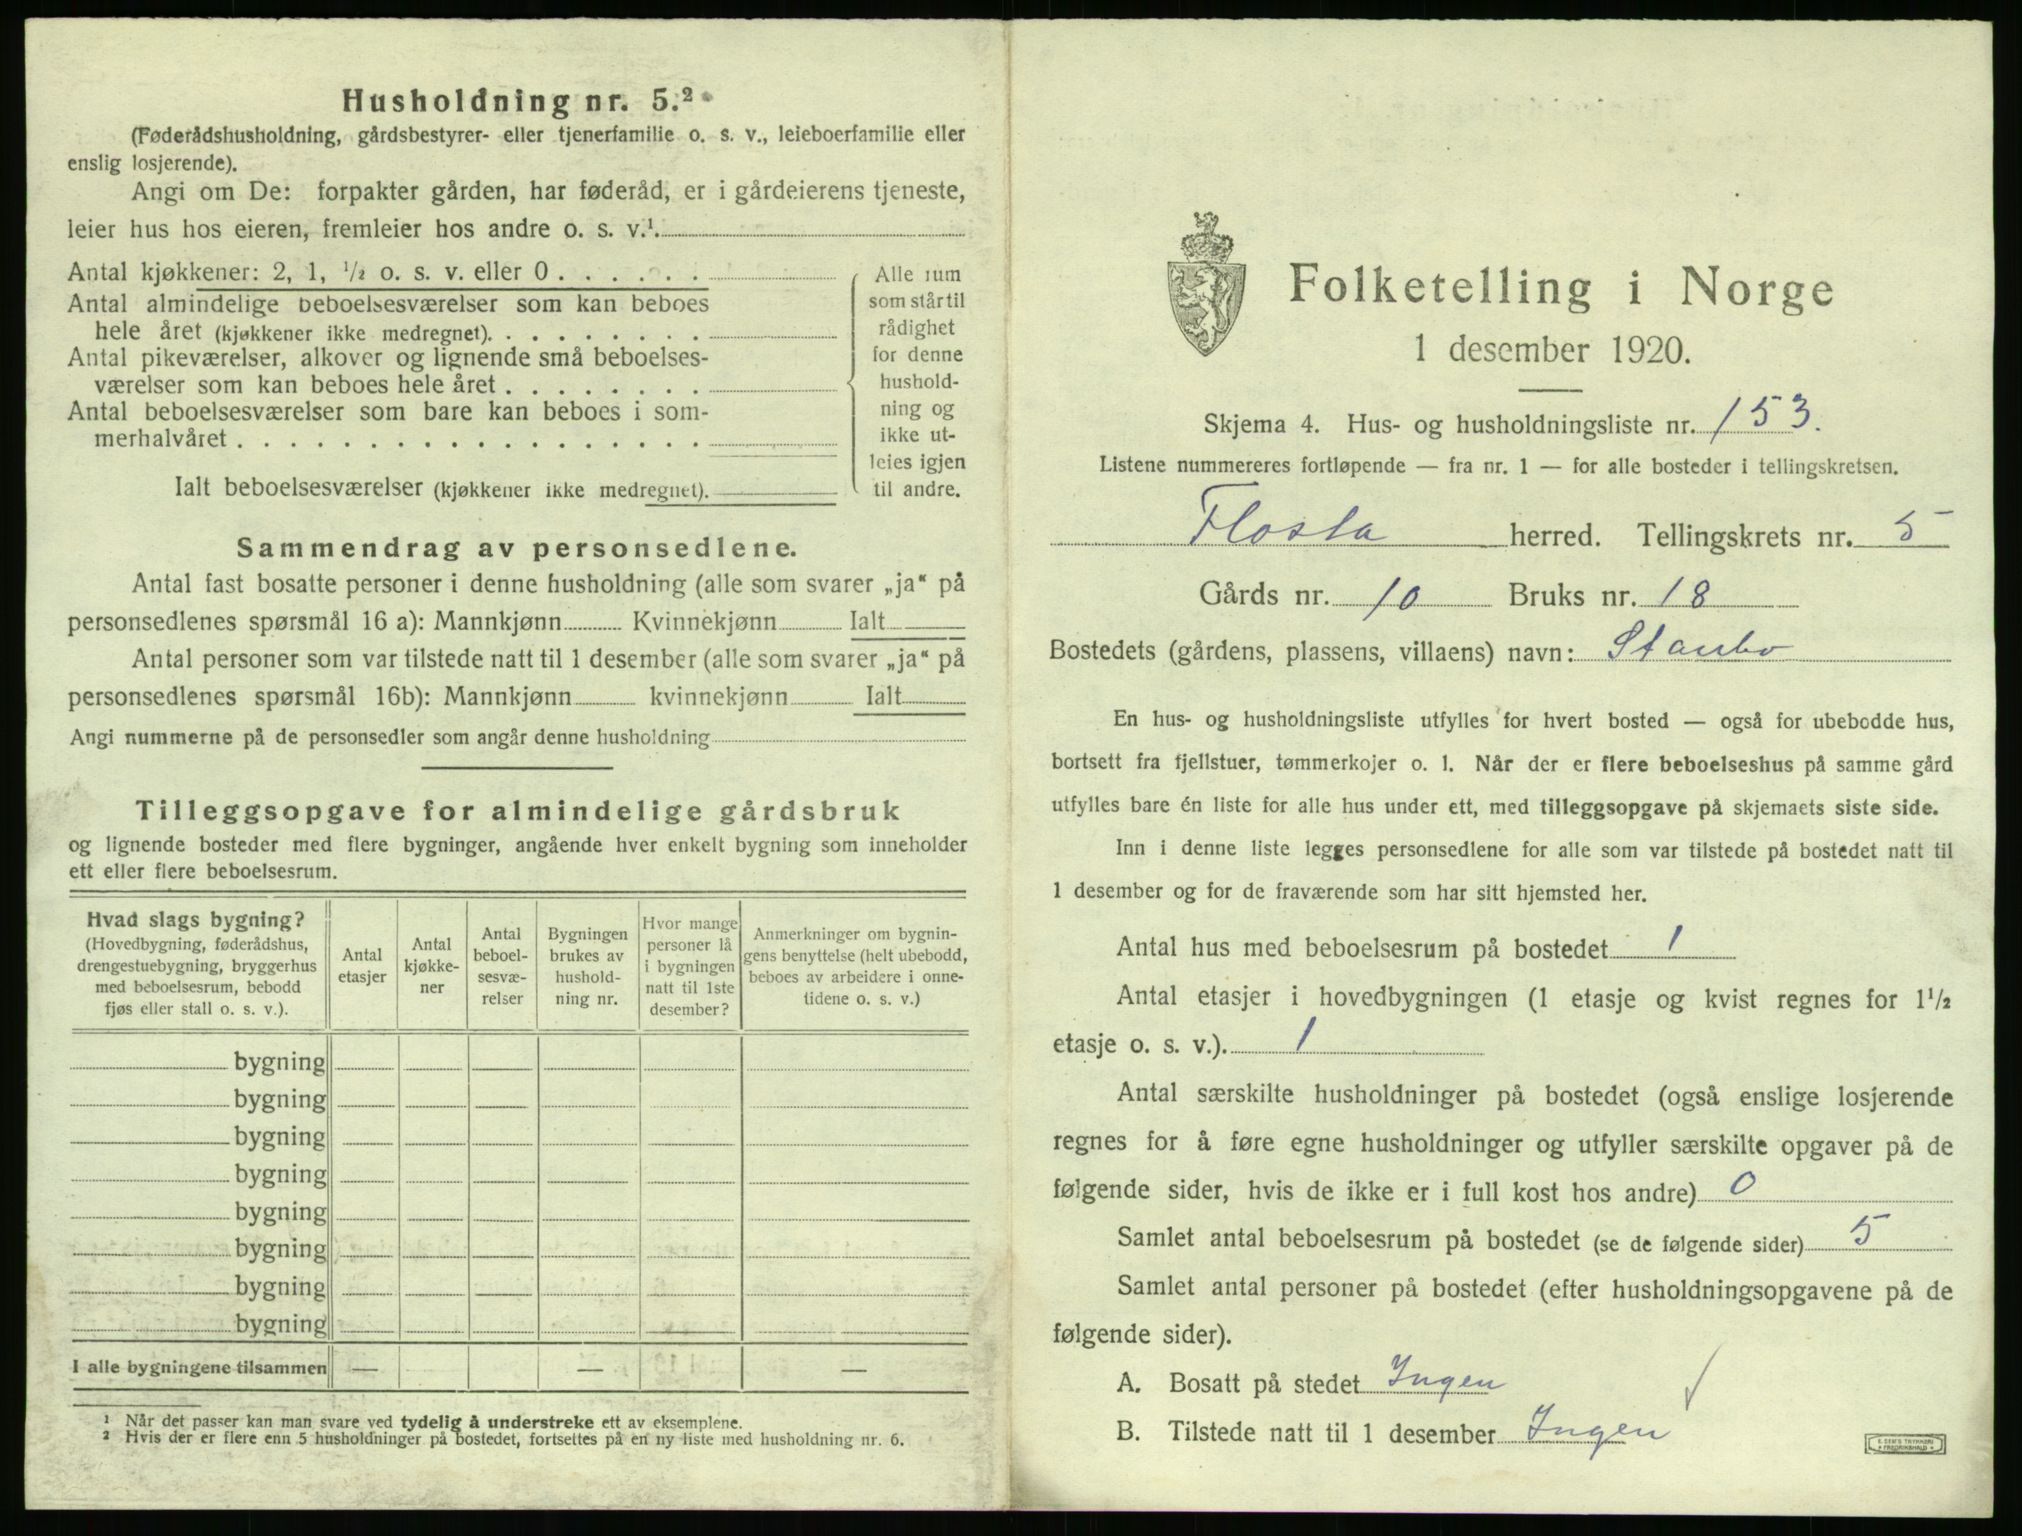 Husholdning nr. 5.²
(Føderådshusholdning, gårdsbestyrer- eller tjenerfamilie o. s. v., leieboerfamilie eller
enslig losjerende).
Angi om De: forpakter gården, har føderåd, er i gårdeierens tjeneste,
leier hus hos eieren, fremleier hos andre o. s. v.¹.
Antal kjøkkener: 2, 1, ½ o. s. v. eller 0 . . . . . .
Antal almindelige beboelsesværelser som kan beboes
hele året (kjøkkener ikke medregnet). . . . . . . . .
Antal pikeværelser, alkover og lignende små beboelses-
værelser som kan beboes hele året . . . . . . . .
Antal beboelsesværelser som bare kan beboes i som-
merhalvåret . . . . . . . . . . . . . . . . . .
Ialt beboelsesværelser (kjøkkener ikke medregnet).
Alle rum
som står til
rådighet
for denne
hushold-
ning og
ikke ut-
leies igjen
til andre.
Sammendrag av personsedlene.
Antal fast bosatte personer i denne husholdning (alle som svarer „ja“ på
personsedlenes spørsmål 16 a): Mannkjønn Kvinnekjønn Ialt
Antal personer som var tilstede natt til 1 desember (alle som svarer „ja“ på
personsedlenes spørsmål 16b): Mannkjønn kvinnekjønn Ialt
Angi nummerne på de personsedler som angår denne husholdning
Tilleggsopgave for almindelige gårdsbruk
og lignende bosteder med flere bygninger, angående hver enkelt bygning som inneholder
ett eller flere beboelsesrum.
Hvad slags bygning?
(Hovedbygning, føderådshus,
drengestuebygning, bryggerhus
med beboelsesrum, bebodd
fjøs eller stall o. s. v.).
Antal
etasjer
Antal
kjøkke-
ner
Antal
beboel-
sesvæ-
relser
Bygningen
brukes av
hushold-
ning nr.
Hvor mange
personer lå
i bygningen
natt til 1ste
desember?
Anmerkninger om bygnin-
gens benyttelse (helt ubebodd,
beboes av arbeidere i onne-
tidene o. s. v.)
bygning
bygning
bygning
bygning
bygning
bygning
bygning
bygning
I alle bygningene tilsammen — — —
¹ Når det passer kan man svare ved tydelig å understreke ett av eksemplene.
² Hvis der er flere enn 5 husholdninger på bostedet, fortsettes på en ny liste med husholdning nr. 6.
Folketelling i Norge
1 desember 1920.
Skjema 4. Hus- og husholdningsliste nr. 153.
Listene nummereres fortløpende — fra nr. 1 — for alle bosteder i tellingskretsen.
Flosta herred. Tellingskrets nr. 5
Gårds nr. 10 Bruks nr. 18
Bostedets (gårdens, plassens, villaens) navn: Staubo
En hus- og husholdningsliste utfylles for hvert bosted — også for ubebodde hus,
bortsett fra fjellstuer, tømmerkojer o. l. Når der er flere beboelseshus på samme gård
utfylles bare én liste for alle hus under ett, med tilleggsopgave på skjemaets siste side.
Inn i denne liste legges personsedlene for alle som var tilstede på bostedet natt til
1 desember og for de fraværende som har sitt hjemsted her.
Antal hus med beboelsesrum på bostedet 1
Antal etasjer i hovedbygningen (1 etasje og kvist regnes for 1½
etasje o. s. v.). 1
Antal særskilte husholdninger på bostedet (også enslige losjerende
regnes for å føre egne husholdninger og utfyller særskilte opgaver på de
følgende sider, hvis de ikke er i full kost hos andre) 0
Samlet antal beboelsesrum på bostedet (se de følgende sider) 5
Samlet antal personer på bostedet (efter husholdningsopgavene på de
følgende sider).
A. Bosatt på stedet Ingen
B. Tilstede natt til 1 desember Ingen
E. SEM'S TRYKKERI
FREDRIKSHALD